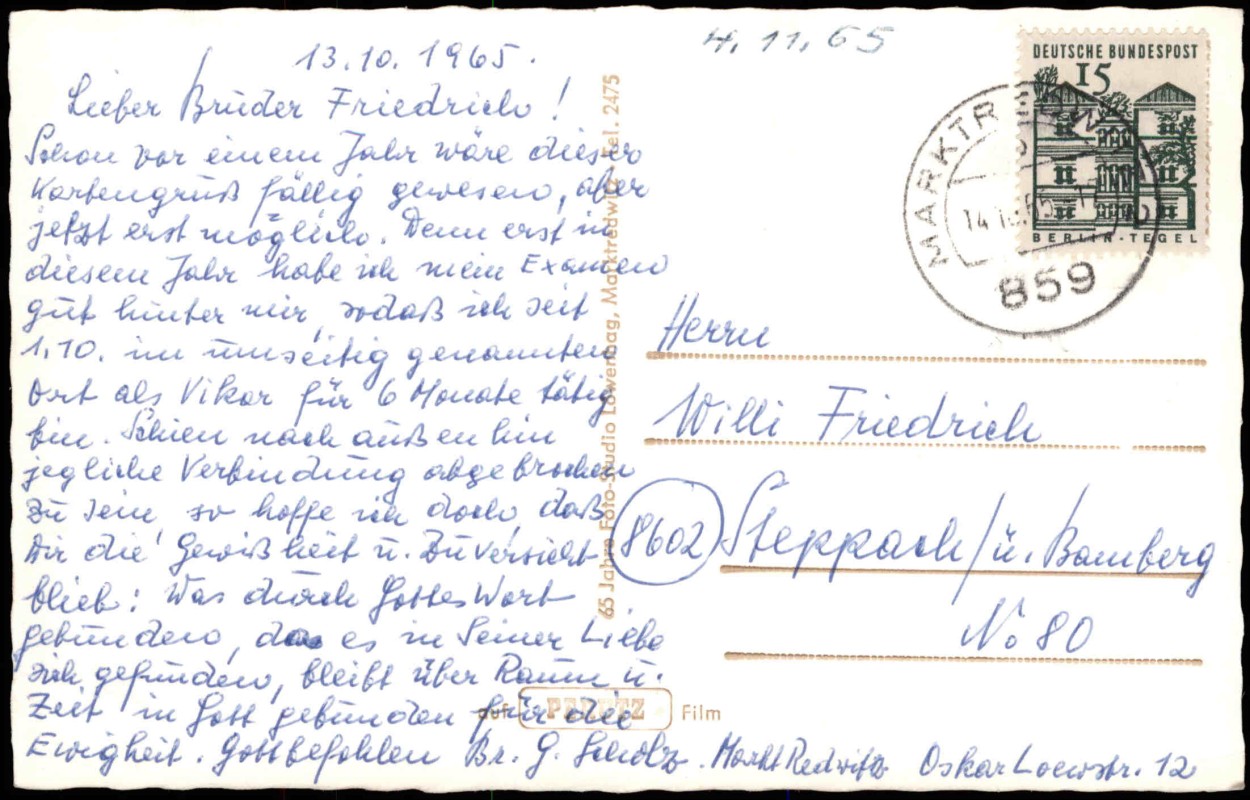 13.10.1965.
Lieber Bruder Friedrich!
Schon vor einem Jahr wäre dieser
Kartengruß fällig gewesen, aber
jetzt erst möglich. Denn erst in
diesem Jahr habe ich mein Examen
gut hinter mir, sodaß ich seit
1.10. im umseitig genannten
Ort als Vikar für 6 Monate tätig
bin. Schien nach außen hin
jegliche Verbindung abgebrochen
zu sein, so hoffe ich doch, daß
Dir die Gewißheit u. Zuversicht
blieb: Was durch Gottes Wort
gebunden, das es in Seiner Liebe
sich gefunden, bleibt über Raum u.
Zeit in Gott gebunden für die
Ewigheit. Gottbefohlen Br. G. Scholz. MarktRedwitz Oskar Loewstr. 12
65 Jahre Foto-Studio Löwenhag, Marktredwitz · Tel. 2475
auf PERUTZ Film
4.11.65
DEUTSCHE BUNDESPOST
15
BERLIN-TEGEL
MARKTREDWITZ
859
Herrn
Willi Friedrich
8602 Steppach/ü. Bamberg
No 80